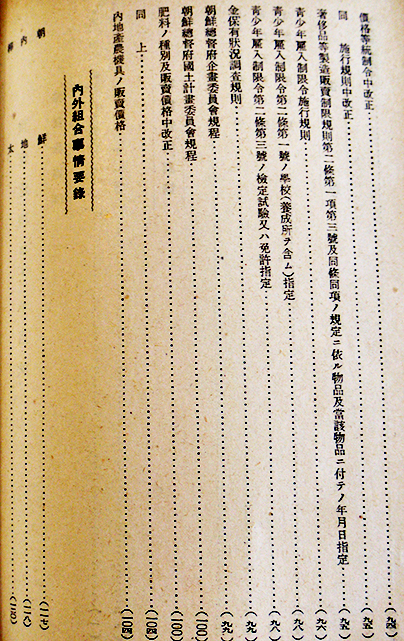 價格等統制令中改正……(九四)
同　施行規則中改正……(九五)
奢侈品等製造販賣制限規則第二條第一項第三號及同條同項ノ規定ニ依ル物品及當該物品ニ付テノ年月日指定……(九五)
靑少年雇入制限令施行規則……(九六)
靑少年雇入制限令第二條第一號ノ學校(養成所ヲ含ム)指定……(九八)
靑少年雇入制限令第二條第三號ノ檢定試驗又ハ免許指定……(九八)
金保有狀況調査規則……(九九)
朝鮮總督府企畫委員會規程……(九九)
朝鮮總督府國土計畫委員會規程……(一〇〇)
肥料ノ種別及販賣價格中改正……(一〇〇)
同　上……(一〇四)
內地產農機具ノ販賣價格……(一〇四)
內外組合事情要錄
朝　鮮……(一一七)
內　地……(一一八)
太……